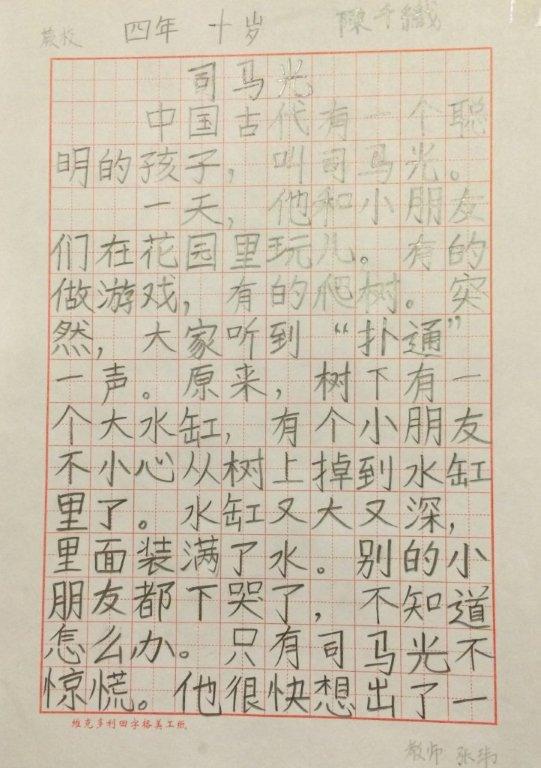 四年 十岁 陳千織
司马光
中国古代有一个聪
明的孩子，叫司马光。
一天，他和小朋友
们在花园里玩儿。有的
做游戏，有的爬树。突
然，大家听到“扑通”
一声。原来，树下有一
个大水缸，有个小朋友
不小心从树上掉到水缸
里了。水缸又大又深，
里面装满了水。别的小
朋友都下哭了，不知道
怎么办。只有司马光不
惊慌。他很快想出了一
维克多利田字格美工纸
教师 张玮